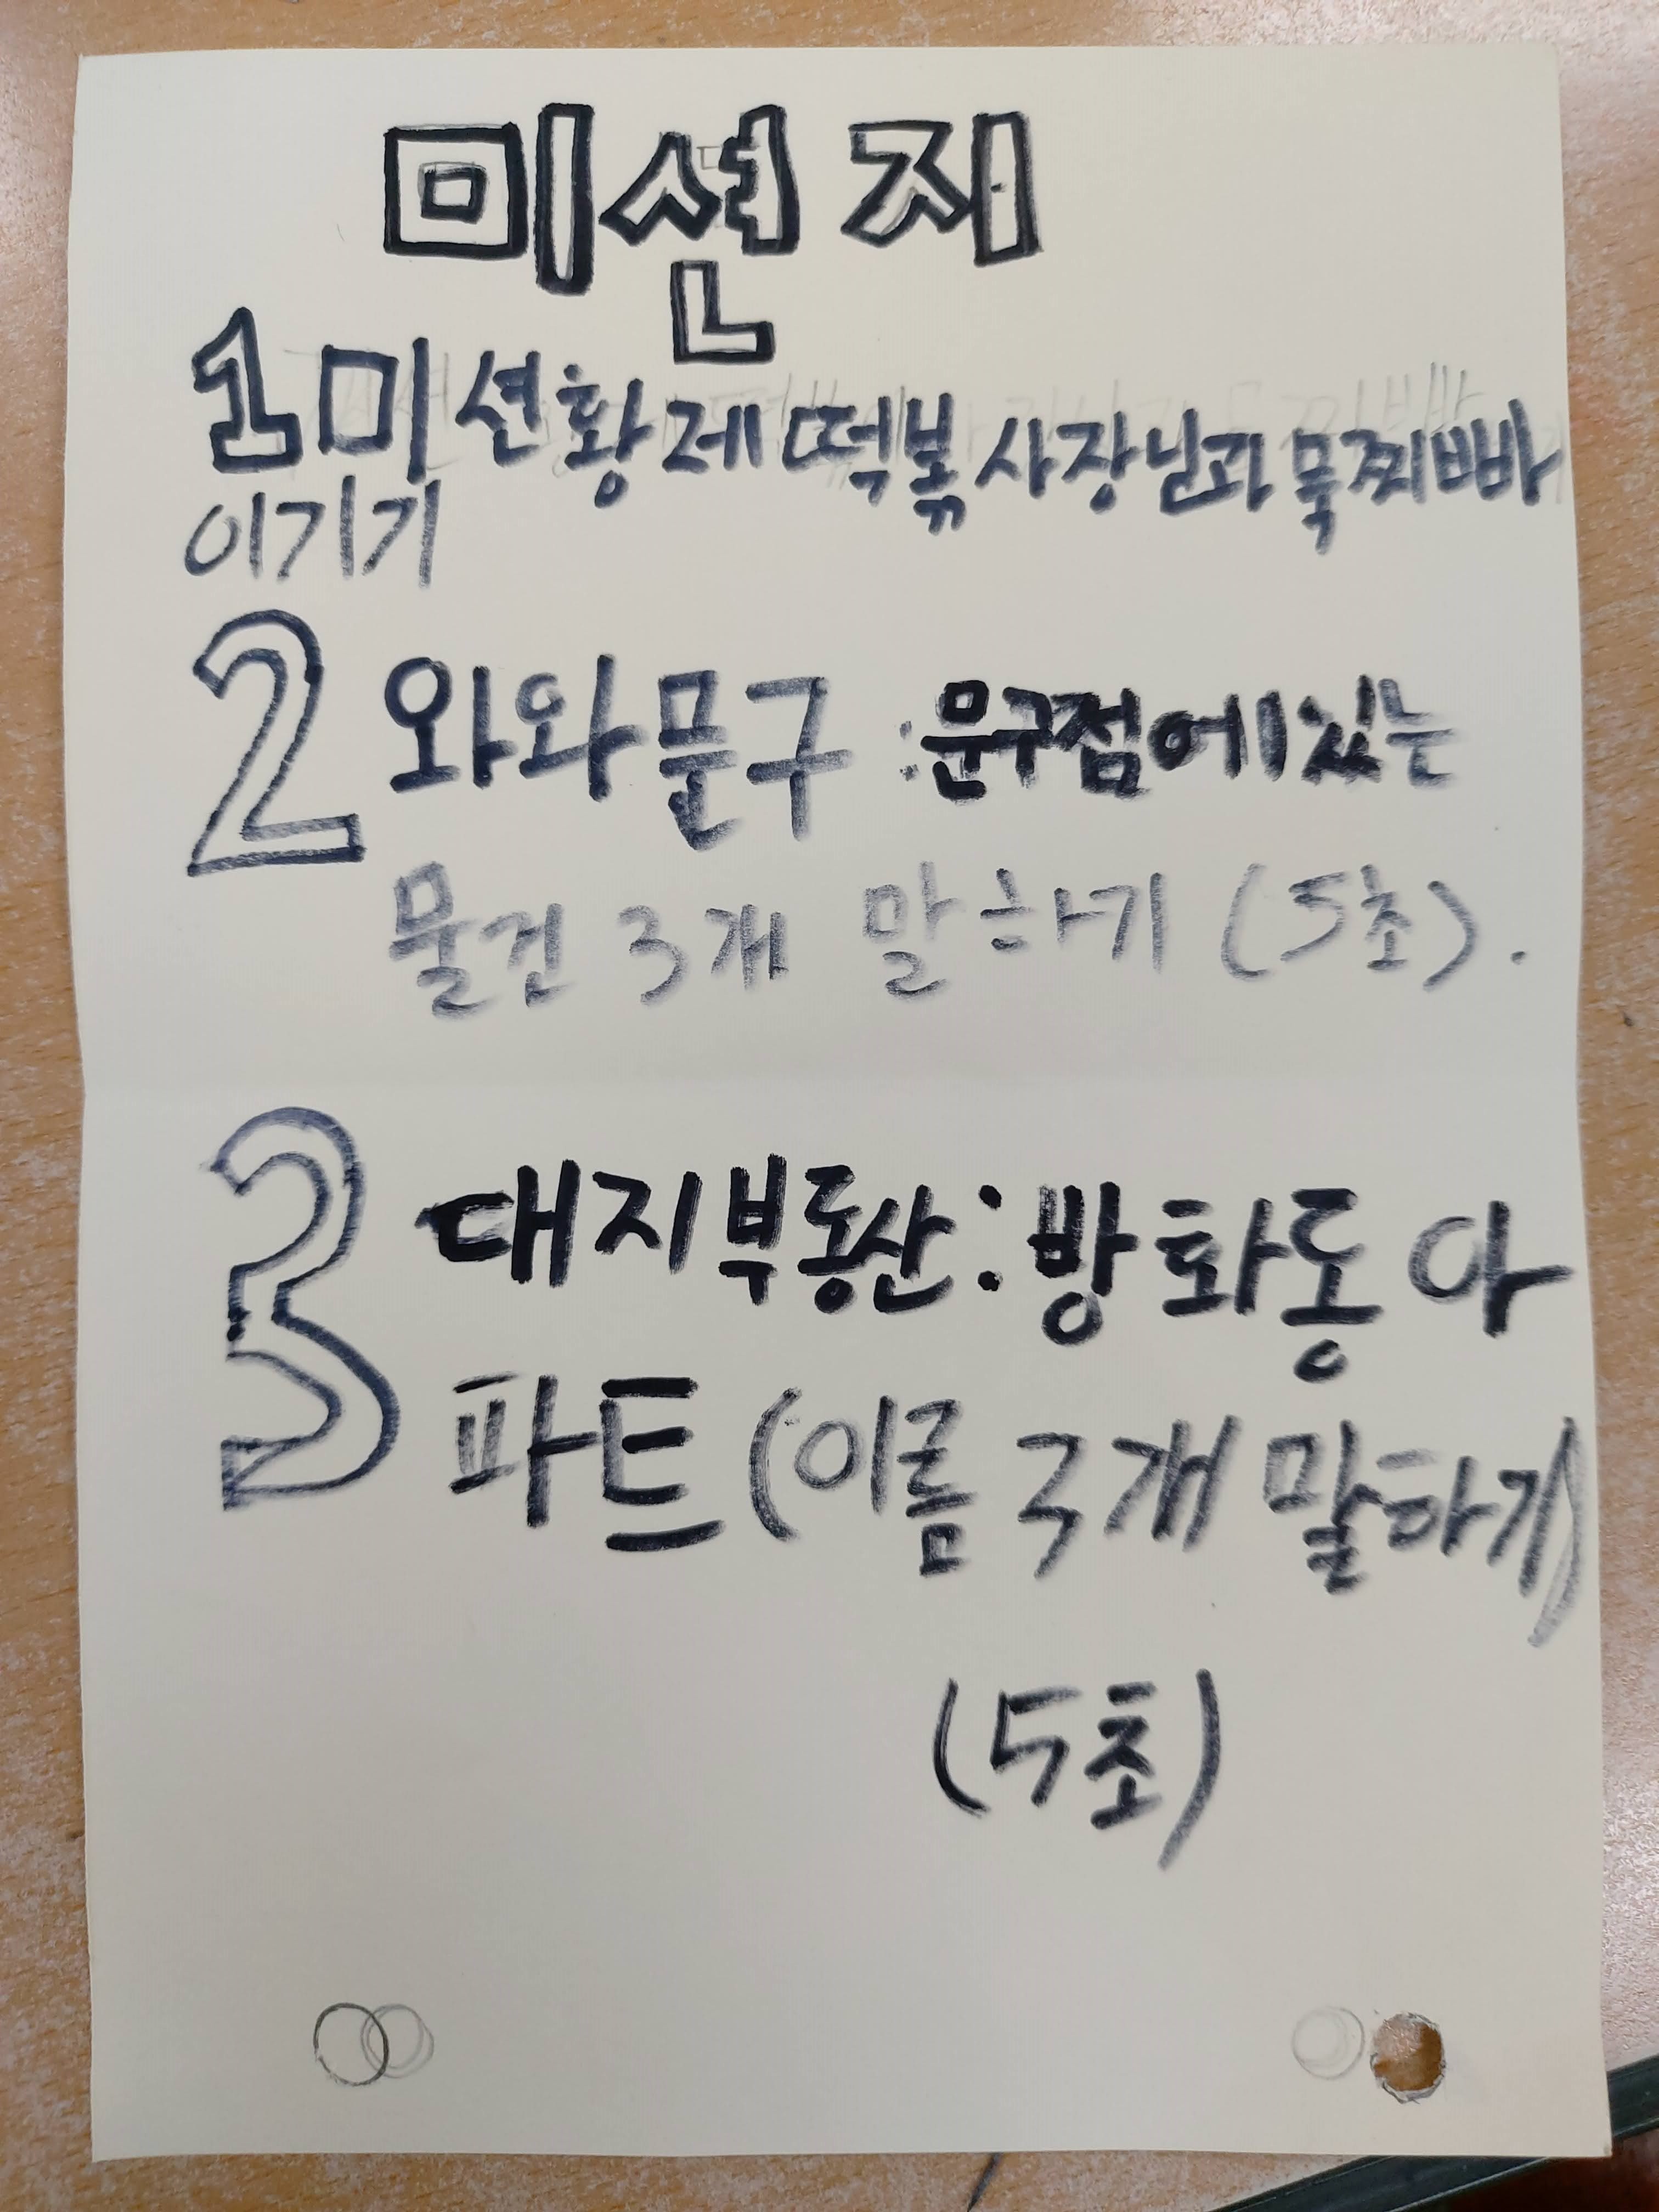 미션지
1미션황제떡볶사장님과묵찌빠
이기기
2 와와문구 :문구점에있는
물건 3개 말하기 (5초).
3 대지부동산:방화동 아
파트 (이름 3개 말하기)
(5초)